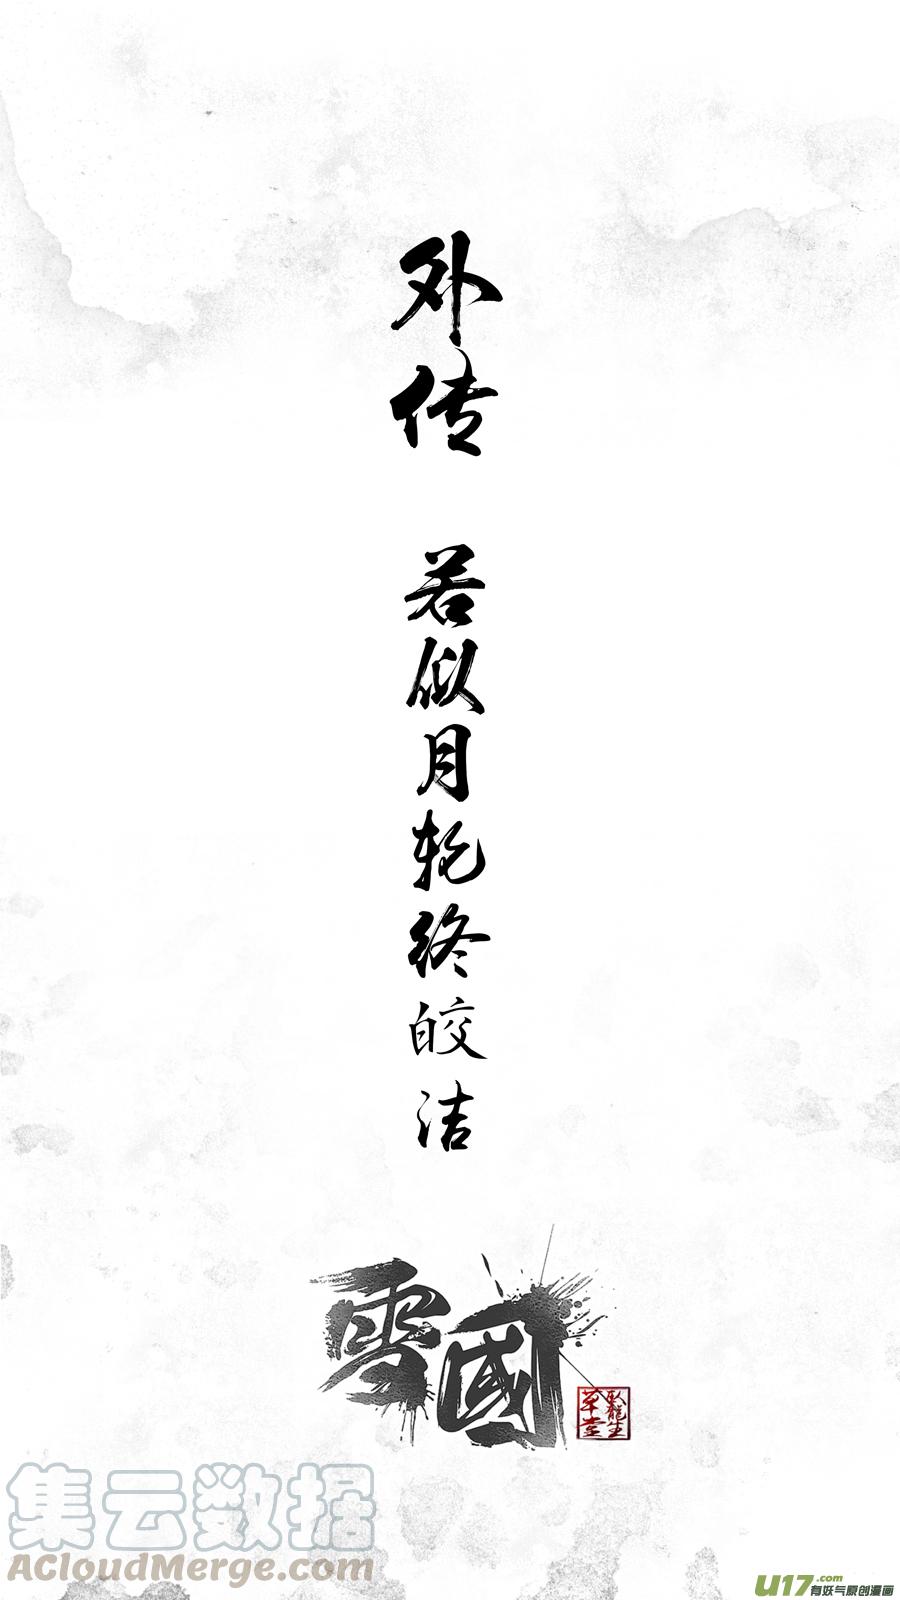 外传
若似月轮终皎洁
雪國
臥龍生
草堂
集云数据
ACloudMerge.com
U17.com
有妖气原创漫画